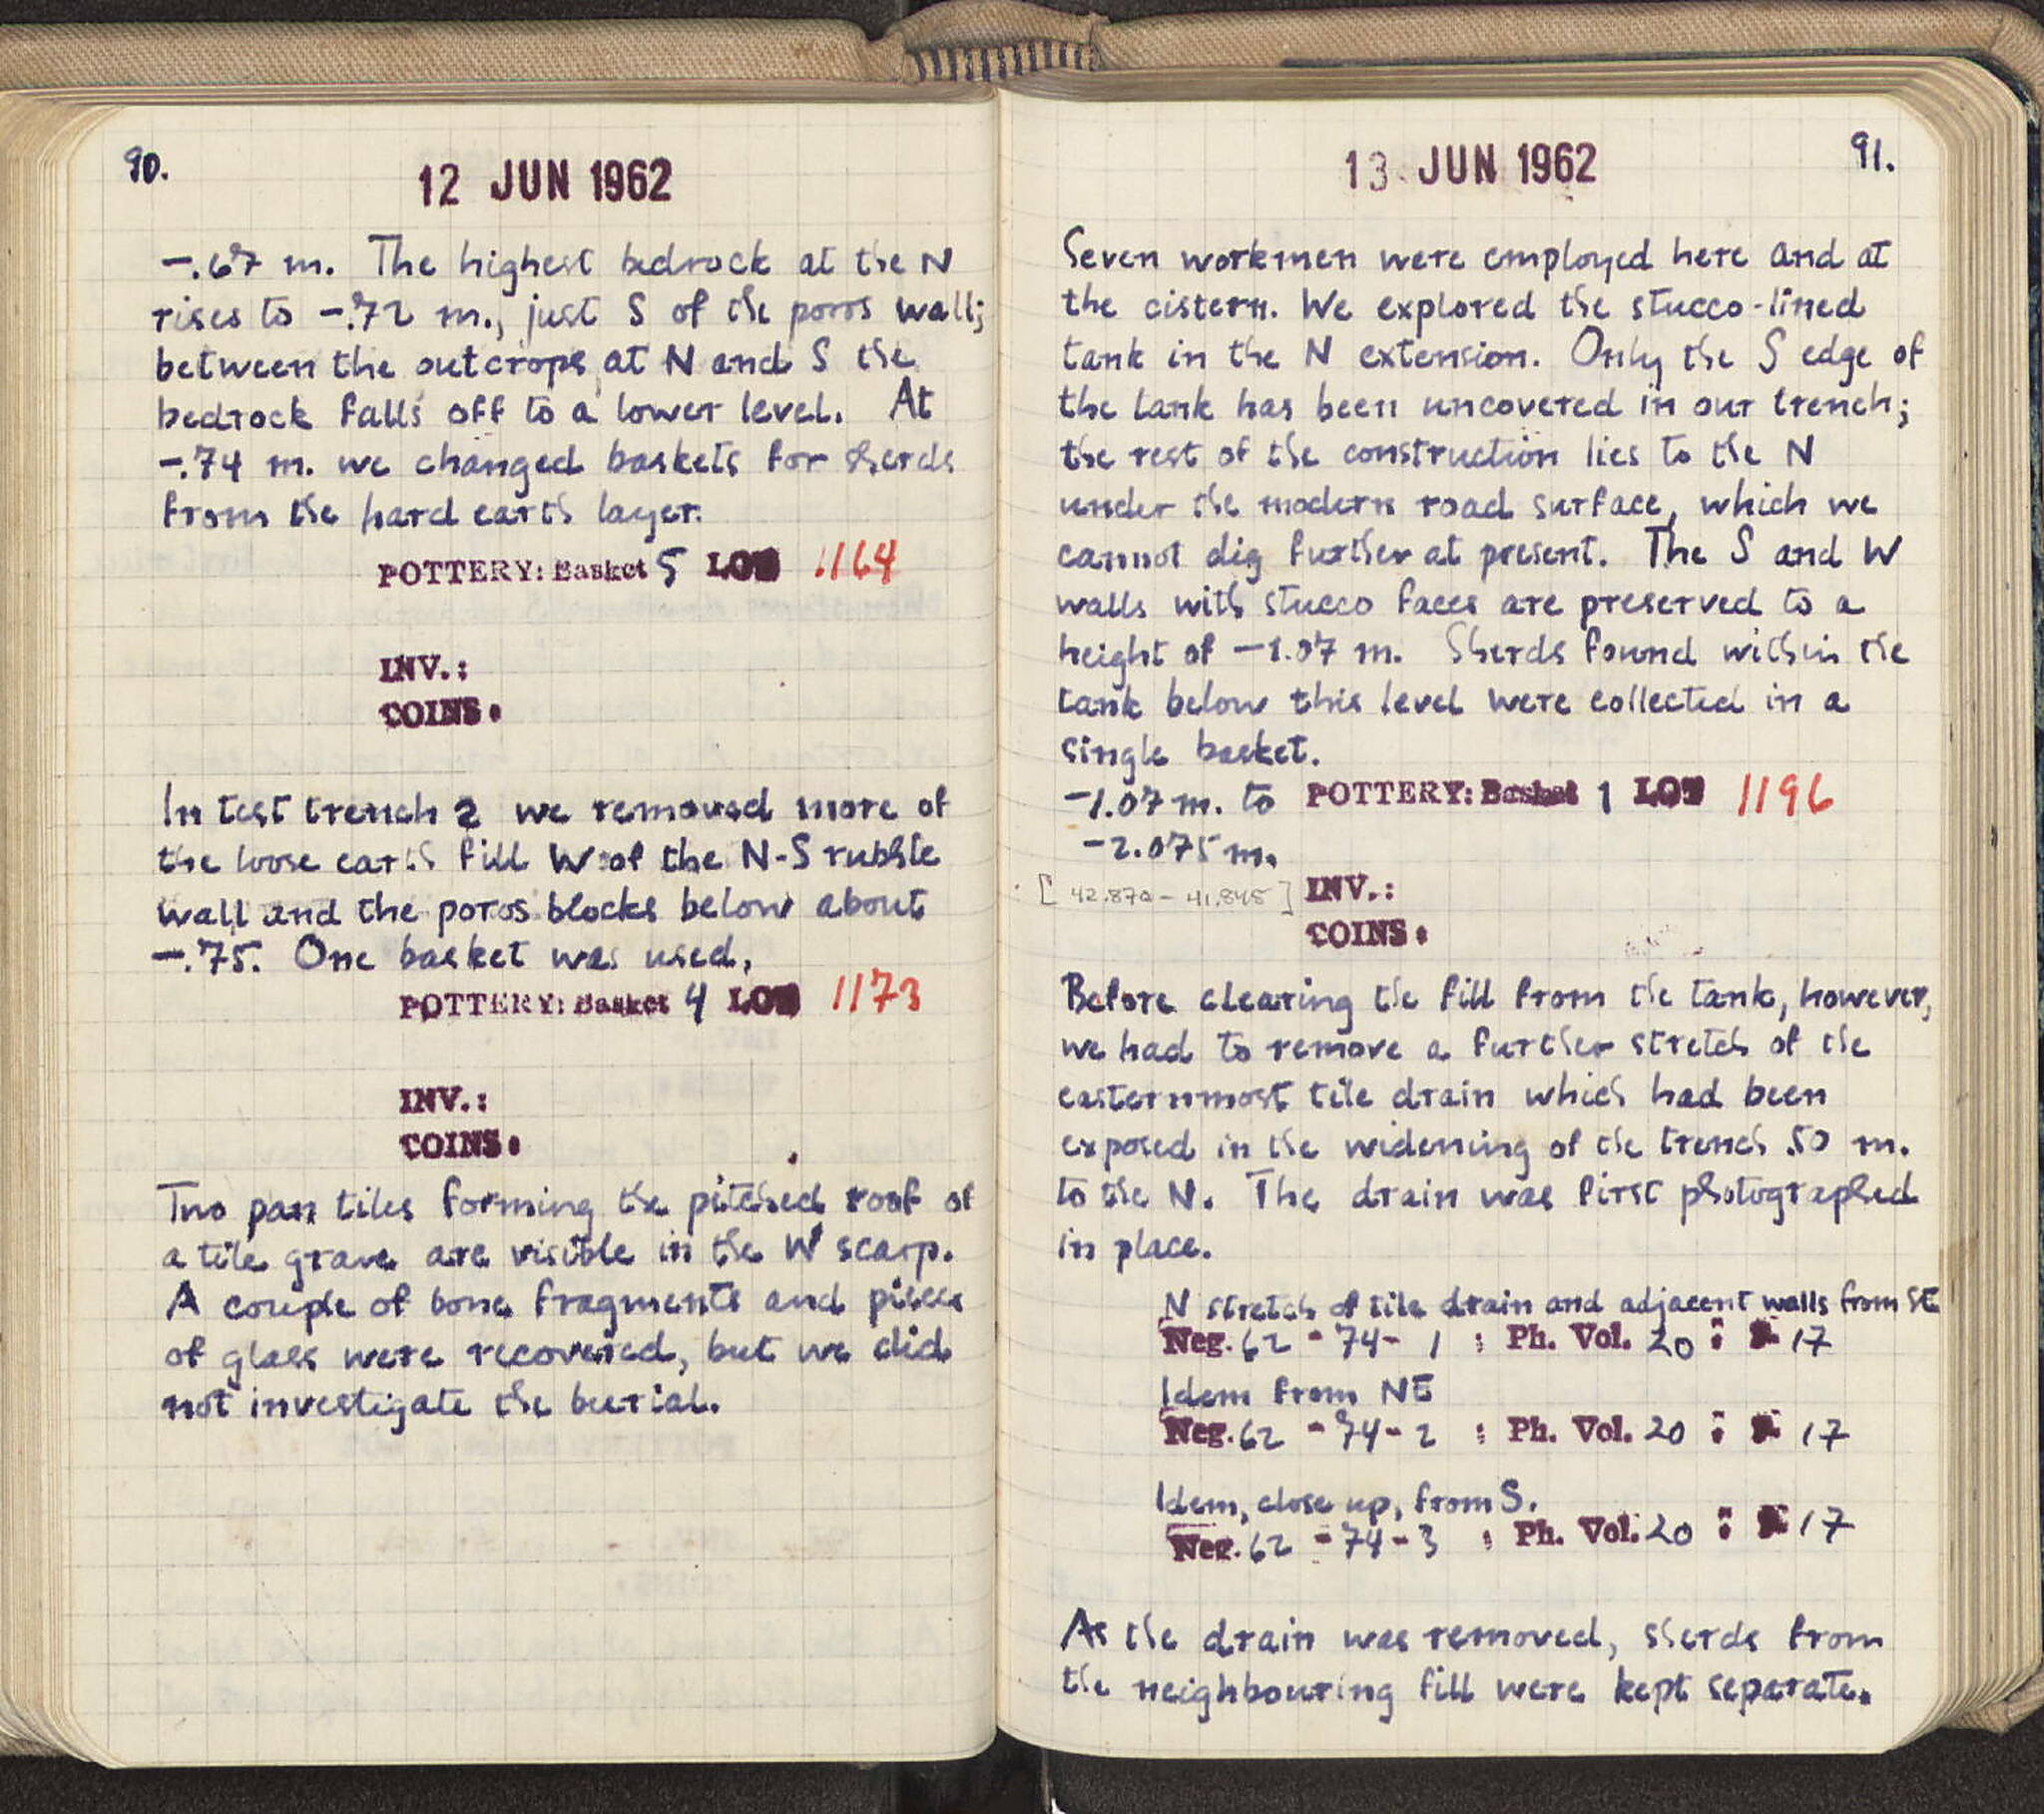 90.
12 JUN 1962
-.67 m. The highest bedrock at the N
rises to -.72 m., just S of the poros wall;
between the outcrops at N and S the
bedrock falls off to a lower level. At
-.74 m. we changed baskets for sherds
from the hard earth layer.
POTTERY: Basket 5 LOT 1164
INV.:
COINS:
In test trench 2 we removed more of
the loose earth fill W of the N-S rubble
wall and the poros blocks below about
-.75. One basket was used.
POTTERY: Basket 4 LOT 1173
INV.:
COINS:
Two pan tiles forming the pitched roof of
a tile grave are visible in the W scarp.
A couple of bone fragments and pieces
of glass were recovered, but we did
not investigate the burial.
91.
13 JUN 1962
Seven workmen were employed here and at
the cistern. We explored the stucco-lined
tank in the N extension. Only the S edge of
the tank has been uncovered in our trench;
the rest of the construction lies to the N
under the modern road surface, which we
cannot dig further at present. The S and W
walls with stucco faces are preserved to a
height of -1.07 m. Sherds found within the
tank below this level were collected in a
single basket.
-1.07 m. to POTTERY: Basket 1 LOT 1196
-2.075 m.
[42.870 - 41.845] INV.:
COINS:
Before clearing the fill from the tank, however,
we had to remove a further stretch of the
easternmost tile drain which had been
exposed in the widening of the trench .50 m.
to the N. The drain was first photographed
in place.
N stretch of tile drain and adjacent walls from SE
Neg. 62 - 74 - 1 : Ph. Vol. 20 : 17
Idem from NE
Neg. 62 - 74 - 2 : Ph. Vol. 20 : 17
Idem, close up, from S.
Neg. 62 - 74 - 3 : Ph. Vol. 20 : 17
As the drain was removed, sherds from
the neighbouring fill were kept separate.